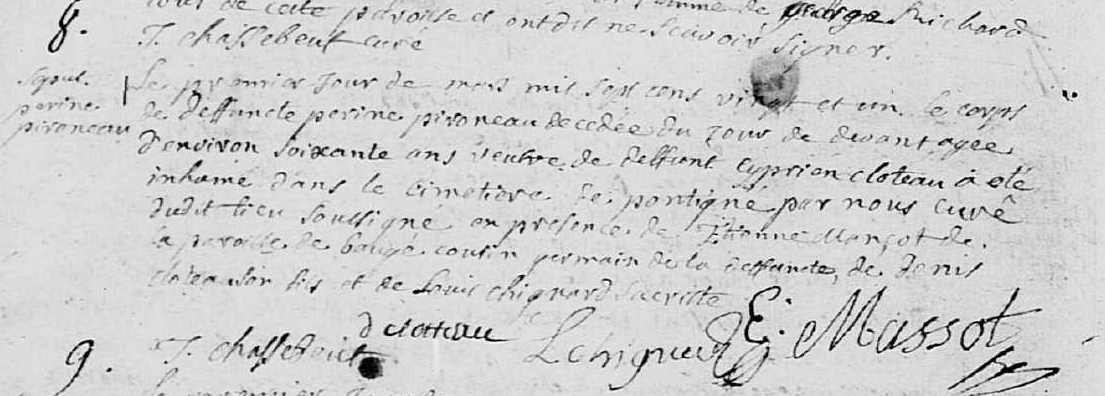 cour de cette paroisse et ont dit ne scavoir signer.
femme de george Richard
8.
F. chassebeuf curé
Sepult.
perine
pironeau
Le premier jour de mars mil sept cens vingt et un le corps
de deffuncte perine pironeau decedée du jour de devant agée
d'environ soixante ans veufve de deffunt cyprien cloteau a eté
inhumé dans le cimetiere de pontigné par nous curé
dudit lieu soussigné en presence de Etienne Marçot de
la paroisse de baugé cousin germain de la deffuncte, de denis
cloteau son fis et de Louis chignard sacriste
d cloteau
L chignard
E. Massot
F. chassebeuf
9.
Le premier